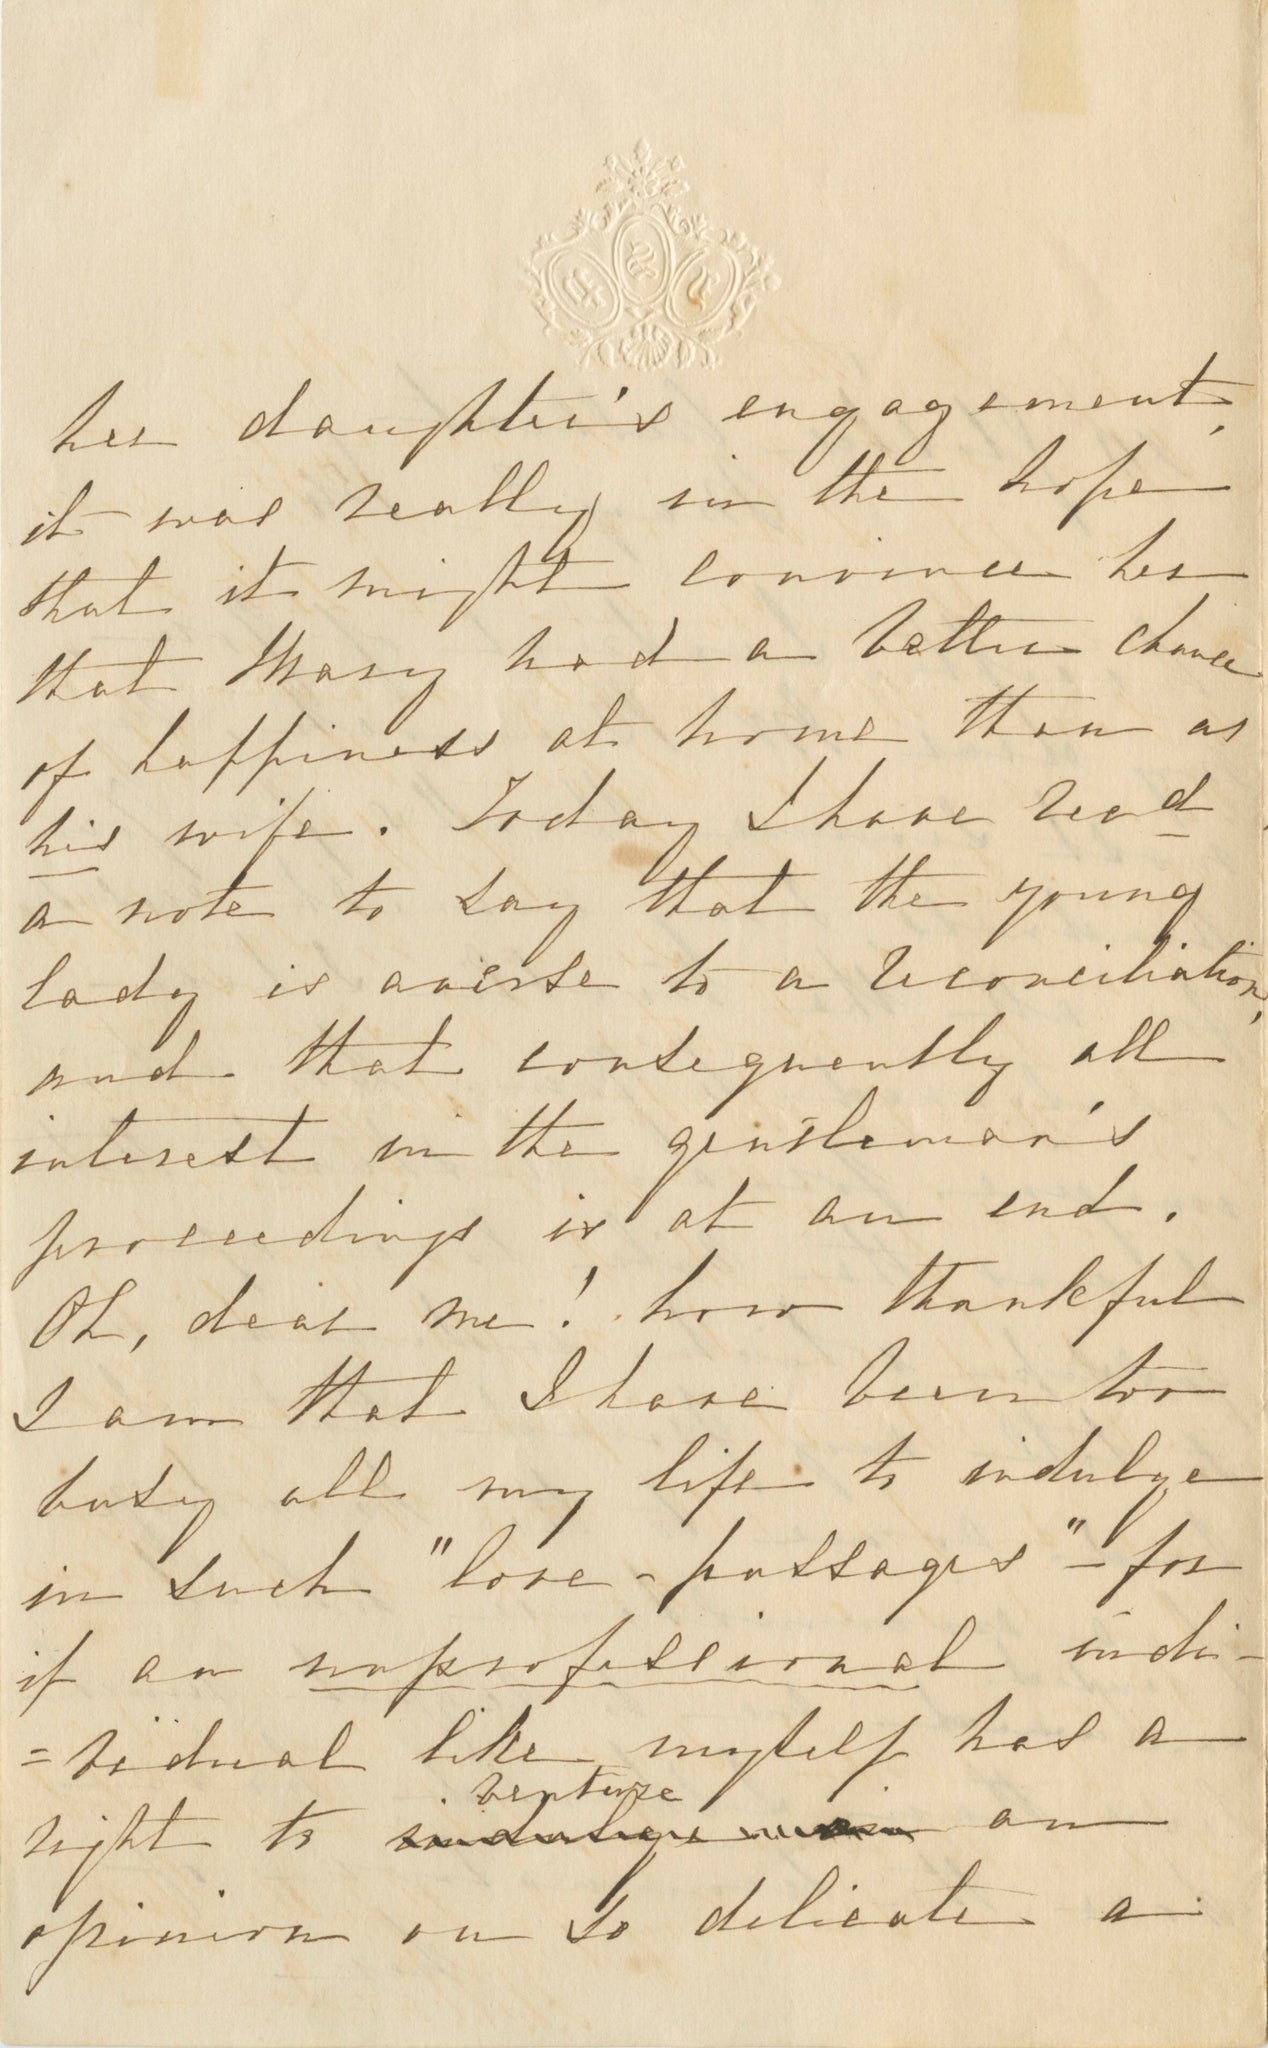 her daughter's engagement,
it was really in the hope
that it might convince her
that Mary had a better chance
of happiness at home than as
his wife. Today I have rec.d
a note to say that the young
lady is averse to a reconciliation,
and that consequently all
interest in the gentleman's
proceedings is at an end.
Oh, dear me! how thankful
I am that I have been too
busy all my life to indulge
in such "love-passages" - for
if an unprofessional indi-
=vidual like myself has a
venture
right to indulge in an
opinion on so delicate a